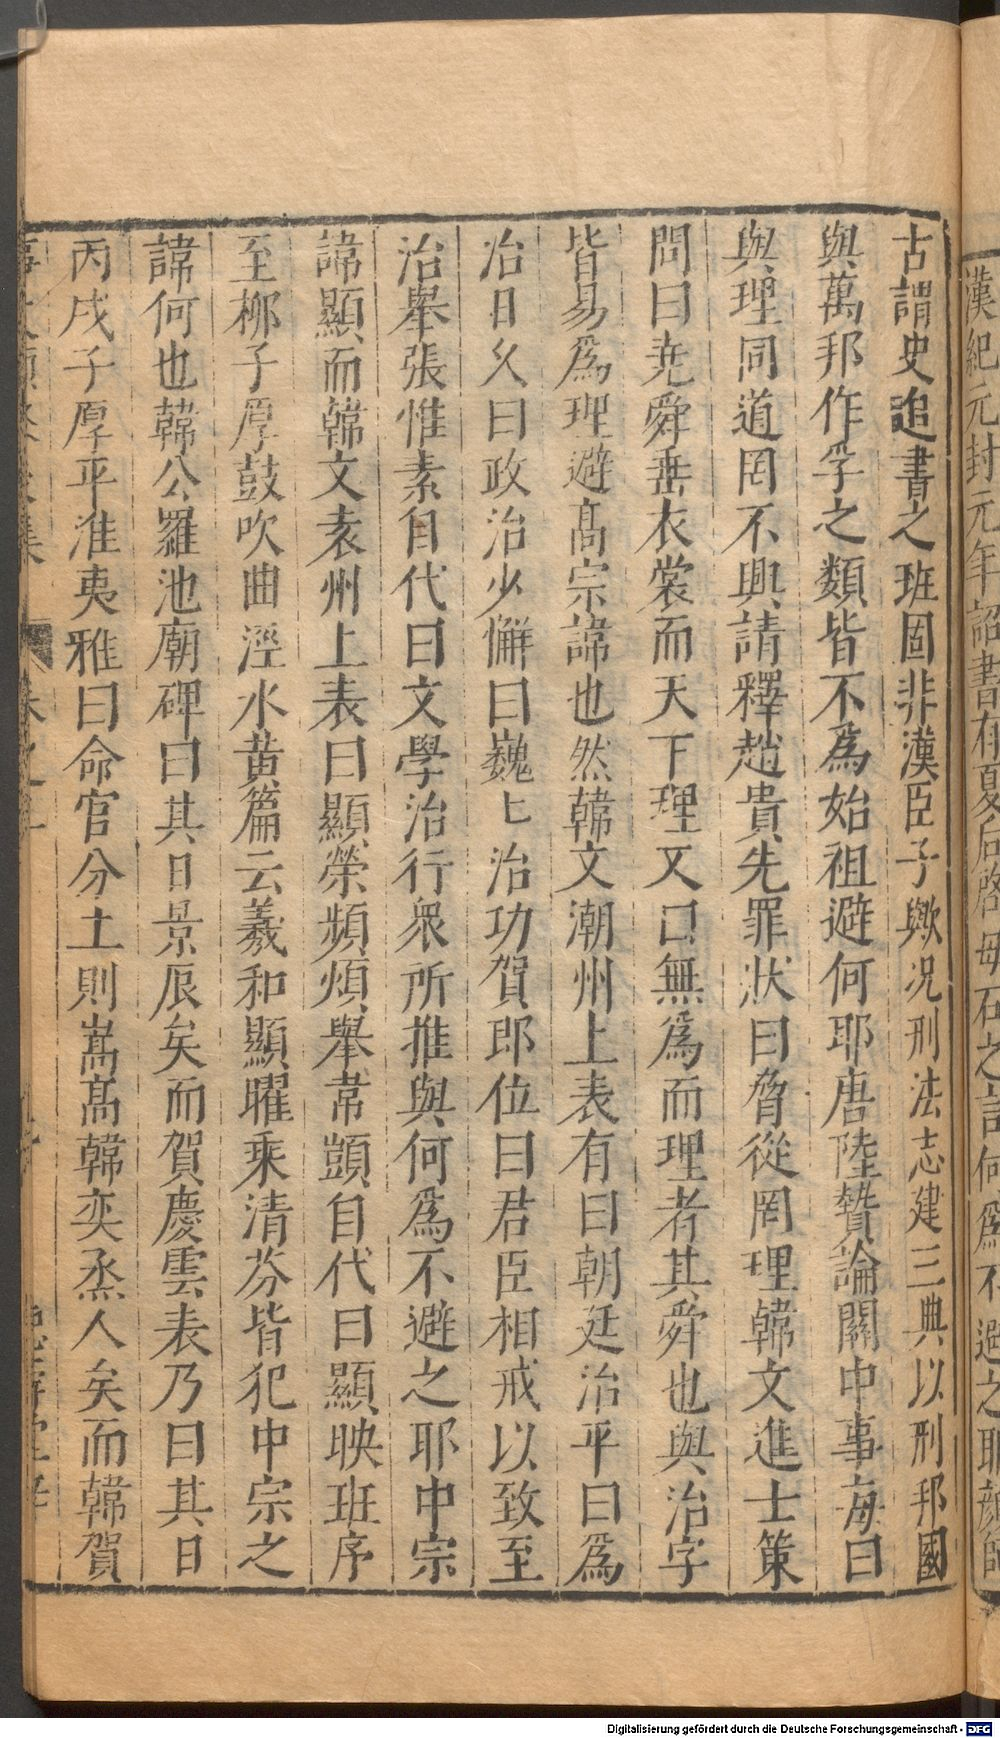 漢紀元封元年詔書有夏后啓母石之言何爲不避之耶顔師
古謂史追書之班固非漢臣子歟况刑法志建三典以刑邦國
與萬邦作孚之類皆不爲始祖避何耶唐陸贄論關中事每曰
與理同道罔不興請釋趙貴先罪狀曰脅從罔理韓文進士策
問曰堯舜垂衣裳而天下理又曰無爲而理者其舜也與治字
皆易爲理避高宗諱也然韓文潮州上表有曰朝廷治平曰爲
治日久曰政治少懈曰巍巍治功賀郎位曰君臣相戒以致至
治舉張惟素自代曰文學治行衆所推與何爲不避之耶中宗
諱顯而韓文袁州上表曰顯榮頻煩舉常顗自代曰顯映班序
至柳子厚鼓吹曲涇水黄篇云羲和顯曜乘清芬皆犯中宗之
諱何也韓公羅池廟碑曰其日景辰矣而賀慶雲表乃曰其日
丙戌子厚平淮夷雅曰命官分土則嵩高韓奕烝人矣而韓賀
Digitalisierung gefördert durch die Deutsche Forschungsgemeinschaft - DFG